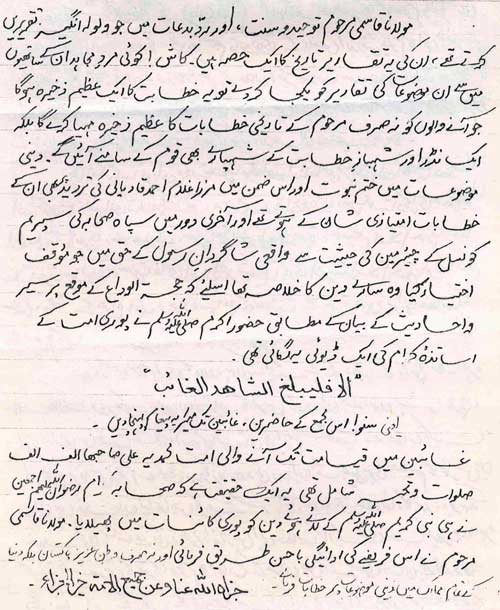 مولانا قاسمی مرحوم توحید و سنت، اور ردّ بدعات میں جو ولولہ انگیز تقریریں
کرتے تھے، ان کی یہ تقاریر تاریخ کا ایک حصہ ہیں۔ کاش! کوئی مردِ مجاہد ان کے ساتھیوں
میں سے ان موضوعات کی تقاریر کو یکجا کر دے تو یہ خطابت کا ایک عظیم ذخیرہ ہوگا
جو آنے والوں کو نہ صرف مرحوم کے تاریخی خطابات کا عظیم ذخیرہ مہیا کرے گا بلکہ
ایک نڈر اور شہبازِ خطابت کے شہپارے بھی قوم کے سامنے آئیں گے۔ دینی
موضوعات میں ختم نبوت اور اس ضمن میں مرزا غلام احمد قادیانی کی تردید بھی ان کے
خطابات امتیازی شان کے ہوتے تھے اور آخری دور میں سپاہ صحابہ کی سپریم
کونسل کے چیئرمین کی حیثیت سے واقعی شاگردانِ رسول کے حق میں جو مؤقف
اختیار کیا وہ سارے دین کا خلاصہ تھا اسلئے کہ حجۃ الوداع کے موقع پر سیر
و احادیث کے بیان کے مطابق حضور اکرم صلی اللہ علیہ وسلم نے پوری امت کے
اساتذہ کرام کی ایک ڈیوٹی یہ لگائی تھی۔
"الا فلیبلغ الشاھد الغائب"
یعنی سنو! اس مجمع کے حاضرین، غائبین تک میرا یہ پیغام پہنچا دیں۔
غائبین میں قیامت تک آنے والی امت محمدیہ علی صاحبھا الف الف
صلوات و تحیہ شامل تھی یہ ایک حقیقت ہے کہ صحابہ کرام رضوان اللہ علیھم اجمعین
نے ہی نبی کریم صلی اللہ علیہ وسلم کے لائے ہوئے دین کو پوری کائنات میں پھیلا دیا۔ مولانا قاسمی
مرحوم نے اس فریضے کی ادائیگی باحسن طریق فرمائی اور نہ صرف وطن عزیز پاکستان بلکہ دنیا
کے تمام ممالک میں دینی موضوعات پر خطابات فرمائے۔ جزاہ اللہ عنا و عن جمیع الامۃ خیر الجزاء۔